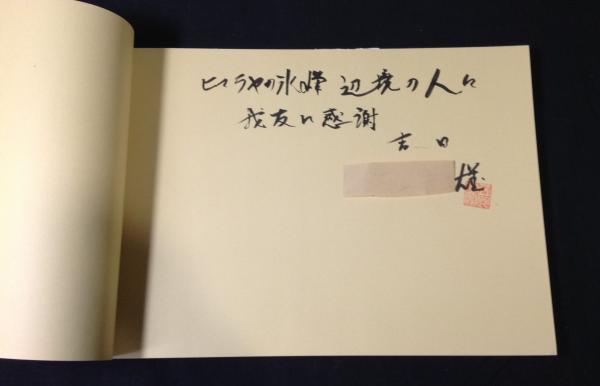 ヒマラヤの氷峰 辺境の人に
我友に感謝
吉日